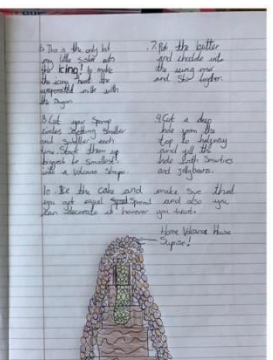 6. This is the only bit
my little sister eats
the icing! to make
the icing heat the
evaporated milk with
the Sugar.
7. Put the butter
and chocolate into
the icing mix
and stir together.
8. Cut your Sponge
circles getting smaller
and smaller each
time. Stack them up
biggest to smallest
with a Volcano Shape
9. Cut a deep
hole from the
top to halfway
and fill the
hole with Smarties
and jellybeans.
10. Ice the cake and make sure that
you get equal Spread and also you
can decorate it however you want.
Home Volcano House
Suprise!